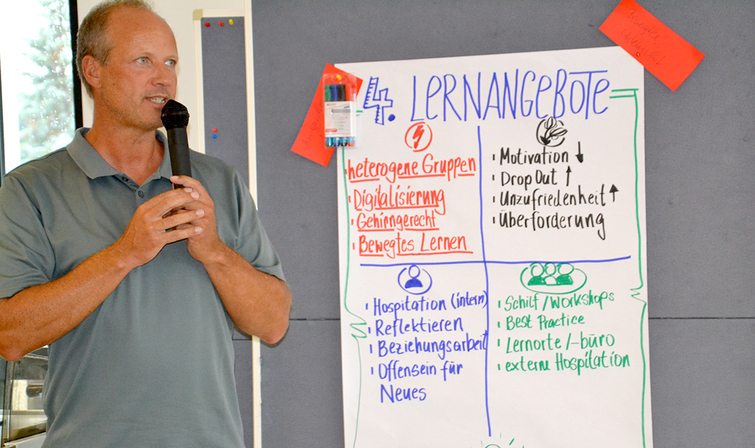 4. LERNANGEBOTE
heterogene Gruppen
Digitalisierung
Gehirngerecht
Bewegtes Lernen
Motivation ↓
Drop Out ↑
Unzufriedenheit ↑
Überforderung
Hospitation (intern)
Reflektieren
Beziehungsarbeit
Offensein für
Neues
Schilf / Workshops
Best Practice
Lernorte /-büro
externe Hospitation